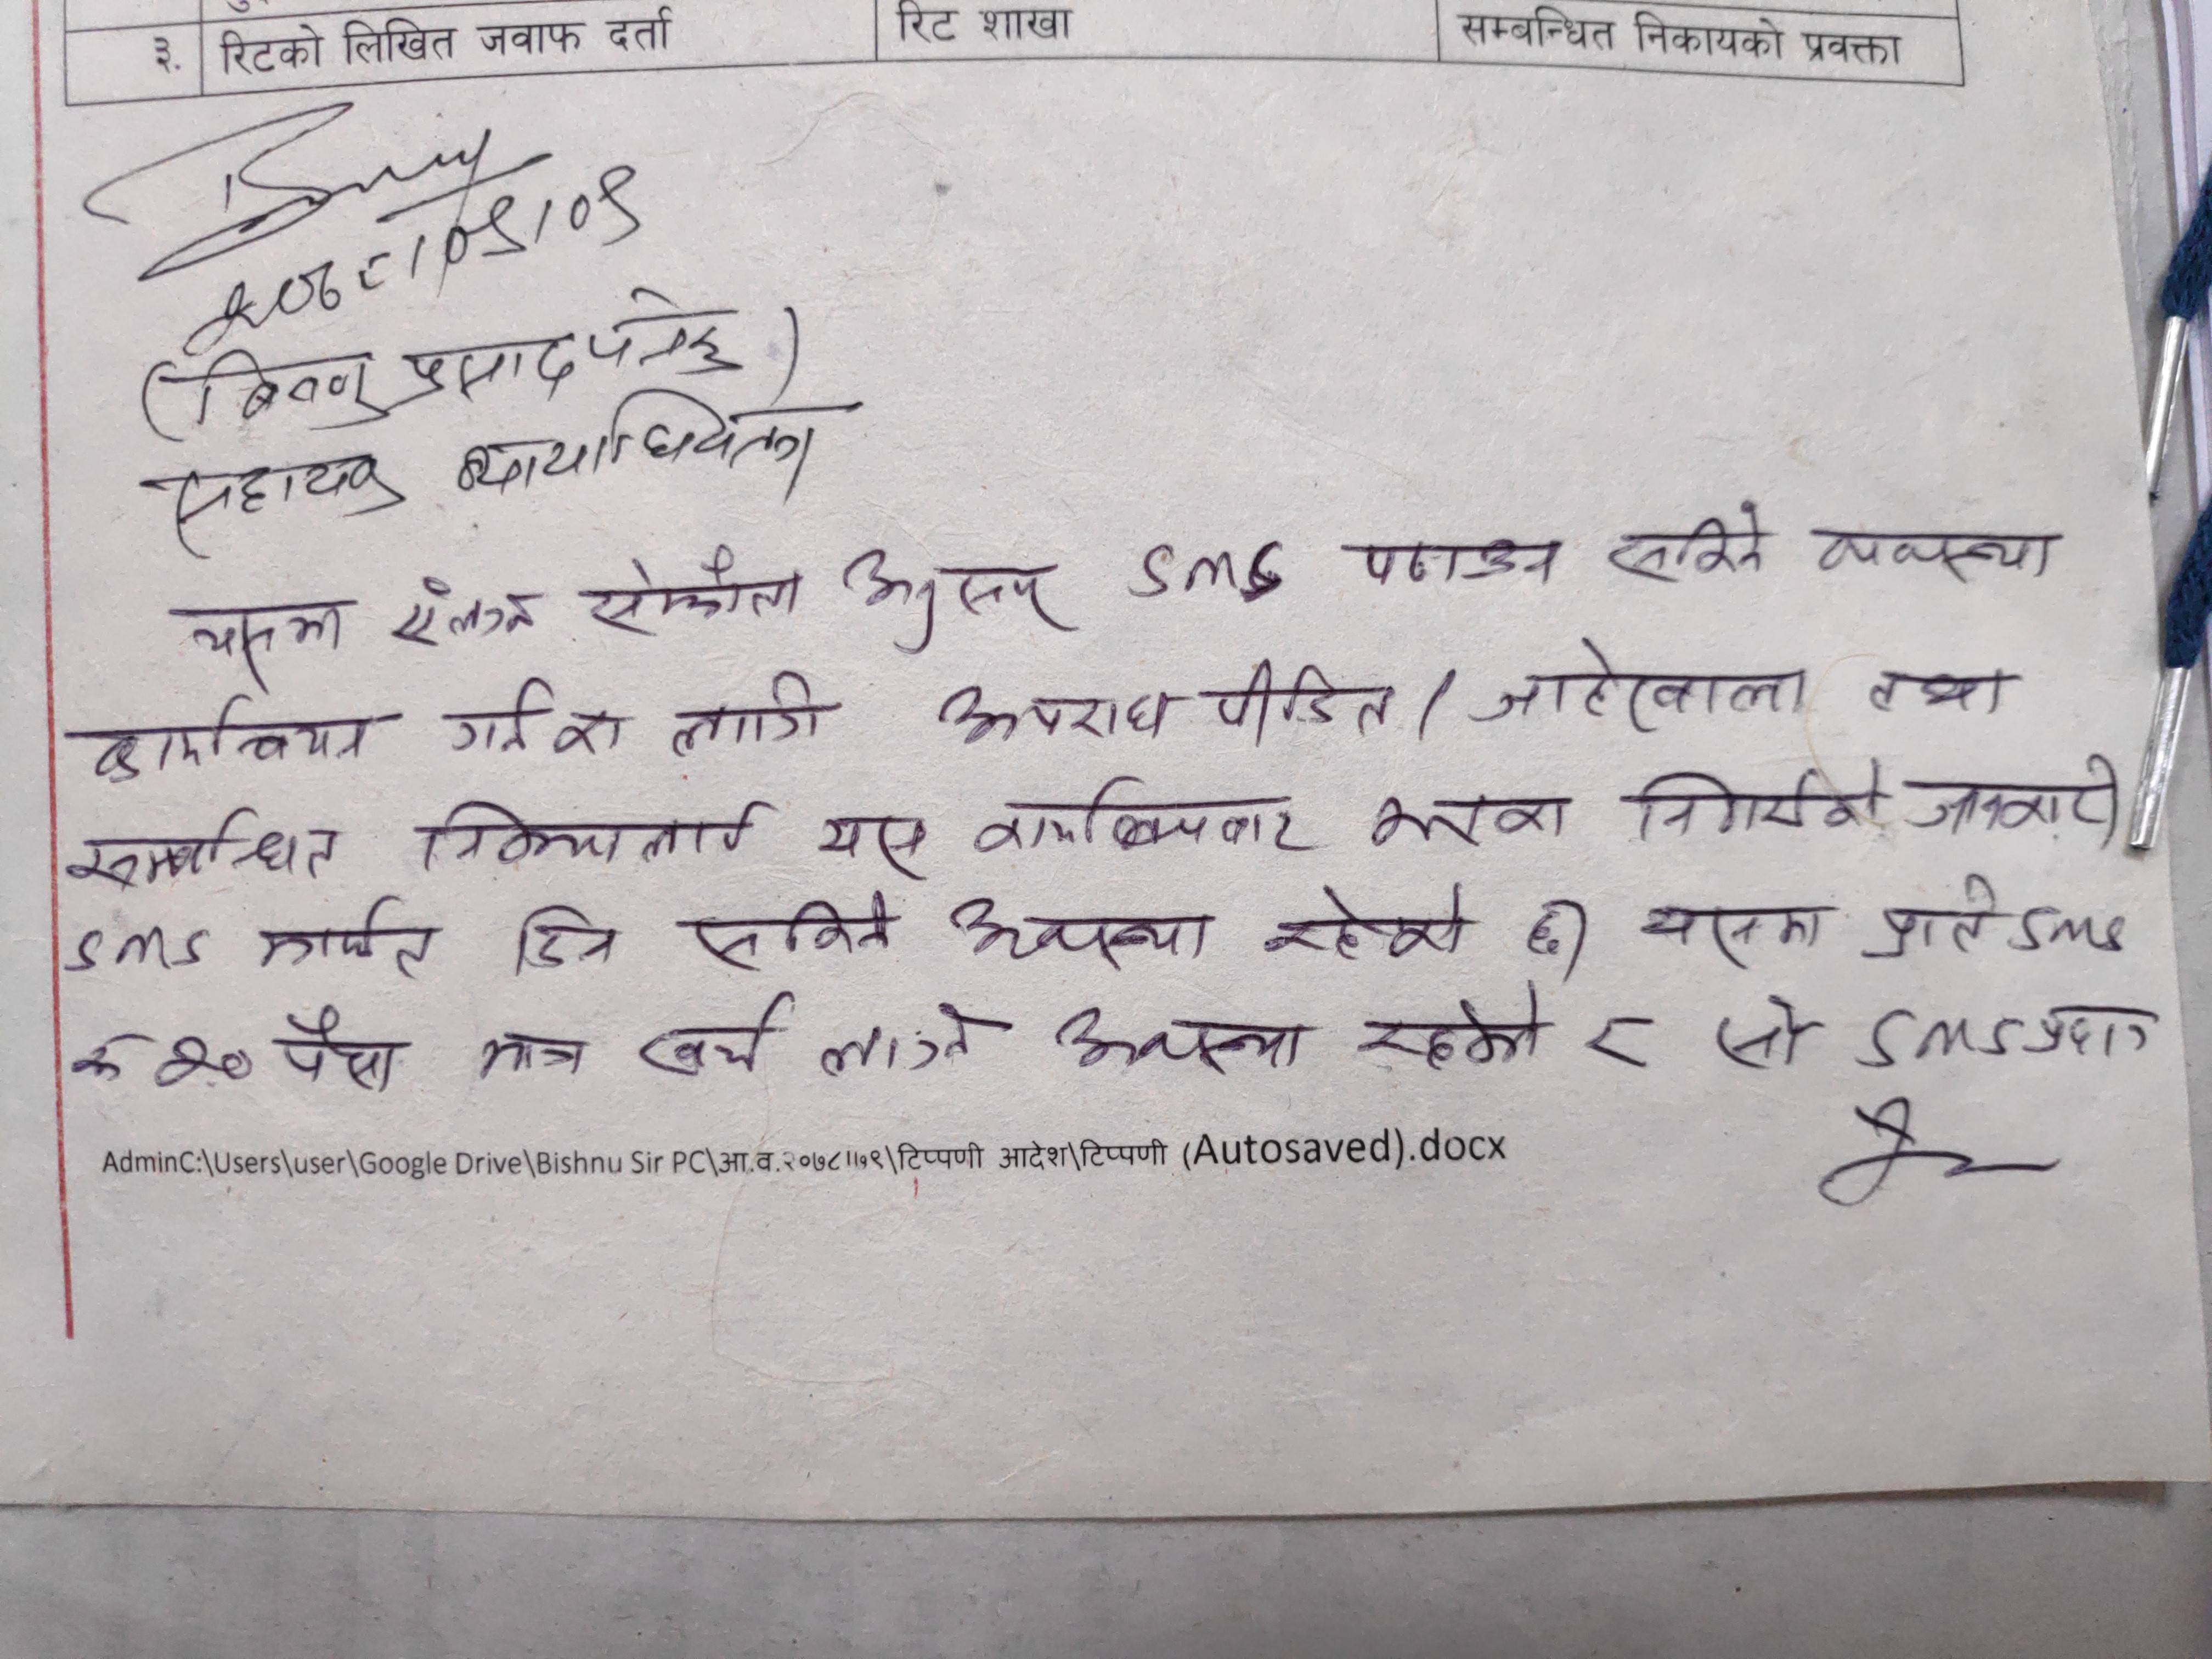 ३. रिटको लिखित जवाफ दर्ता रिट शाखा सम्बन्धित निकायको प्रवक्ता
२०७८।०९।०९
(विष्णु प्रसाद)
सहायक न्यायाधिवक्ता
यसमा संलग्न सम्झौता अनुरुप SMS पठाउन सकिने व्यवस्था
कार्यान्वयन गर्नका लागि अपराध पीडित / जाहेरवाला तथा
सम्बन्धित निकायलाई यस कार्यालयबाट भएका निर्णयको जानकारी
SMS मार्फत दिन सकिने अवस्था रहेको छ। यसमा प्रति SMS
रु २० पैसा मात्र खर्च लाग्ने अवस्था रहेको र सो SMS प्रदान
AdminC:\Users\user\Google Drive\Bishnu Sir PC\आ.व.२०७८।।७९\टिप्पणी आदेश\टिप्पणी (Autosaved).docx